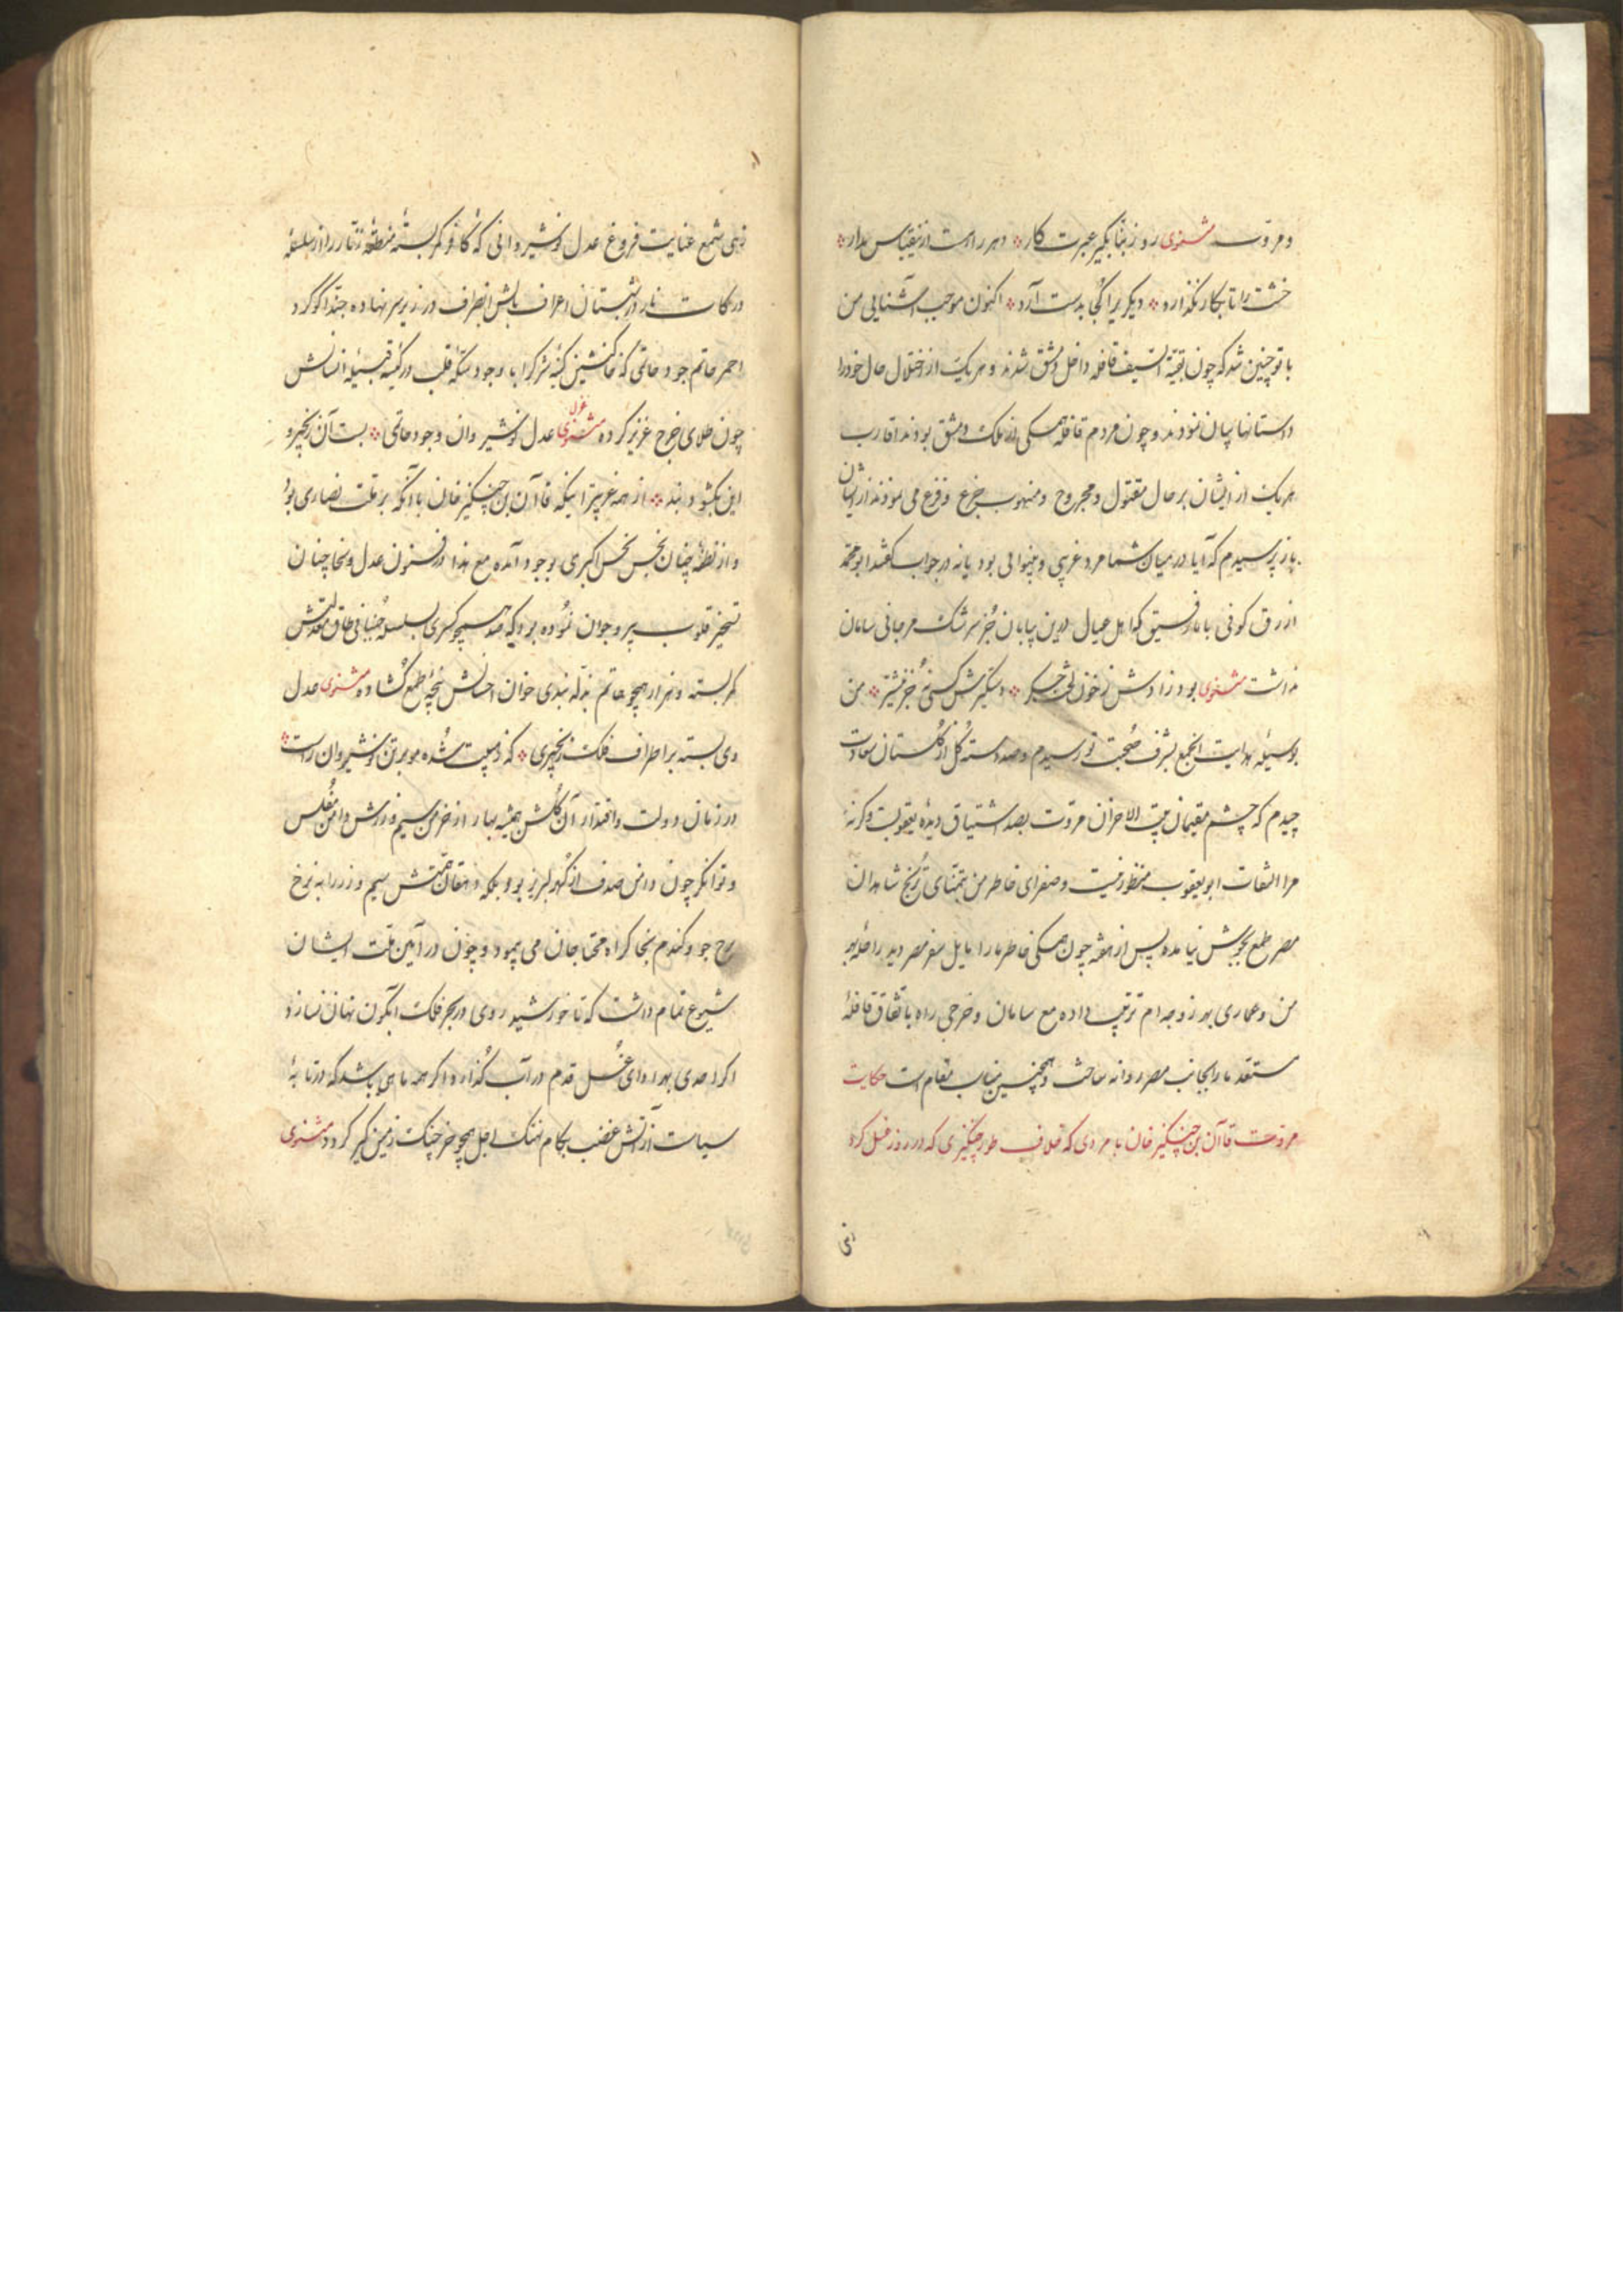 و مروت مثنوی رو ز بنا بگیر عبرت کار دهر راست ازین قیاس مدار
خشت را تا بکار نگذارد دیگریرا کجا بدست آرد اکنون موجب آشنایی من
با تو چنین شد که چون بقیة السیف قافله داخل دمشق شدند و هر یک از اختلال حال خود را
داستانها بیان نمودند و چون مردم قافله همگی از ملک دمشق بودند اقارب
هر یک از ایشان بر حال مقتول و مجروح و منهوب جزع و فزع می نمودند از ایشان
باز پرسیدم که آیا در میان شما مرد غریبی و بینوائی بود یا نه در جواب گفتند ابو محمد
ازرق کوفی با ما رفیق که اهل عیال درین بیابان جز سرشک مرجانی سامان
نداشت مثنوی بود زادش ز خون لخت جگر دستگیرش کسی نه جز من
بوسیله هدایت این جمع بشرف صحبت تو رسیدم و صد دسته گل از گلستان سعادت
چیدم که چشم مقیمان بیت الاحزان مروت بصد اشتیاق دیده یعقوبست وگرنه
مرا التفات ابو یعقوب منظور نیست و صفرای خاطر من بتمنای ترنج شاهدان
مصر طمع بجوش نیامده پس از هفته چون همگی خاطر ما را مایل سفر مصر دید راحله بهر
من و عماری بهر زوجه ام ترتیب داده مع سامان و خرجی راه باتفاق قافله
مستعد ما را بجانب مصر روانه ساخت و همچنین مناسب مقام است حکایت
مروت قاآن بن چنگیز خان با مردی که خلاف طور چنگیزی که در روز غسل کرد
زهی
زهی شمع عنایت فروغ عدل نوشیروانی که کافر کمر بسته منطقه زنار را از سلسله
درکات نار در شبستان اعراف بالش انصراف در زیر سر نهاده حبذا گوگرد
احمر خاتم جود حاتمی که خاک نشین کنیه شرک را با وجود سکه قلب در کیسه قبیله انسانش
چون طلای خرج عزیز کرده مثنوی غزل عدل نوشیروان و جود حاتمی بست آن زنجیر و
این بگشود بند از همه غریبتر اینکه قاآن بن چنگیز خان با آنکه بر ملت نصاری بود
و از نطفه چنان نجس نجس اکبری بوجود آمده مع هذا در فنون عدل و سخا چنان
تسخیر قلوب پیر و جوان نموده بود که صد همچو کسری بسلسله جنبانی طاق معدلتش
کمر بسته و هزار همچو حاتم بذله بندی خوان احسانش پنجه طمع گشاده مثنوی عدل
وی بسته بر اطراف فلک زنجیری که ز هیبت شده مو بر تن نوشیروان راست
در زمان دولت و اقتدار آن گلشن همیشه بهار از خرمن سیم و زرش دامن مفلس
و توانگر چون دامن صدف از گهر لبریز بود بلکه دهقان همتش سیم و زر را به نرخ
جو و گندم بخاک راه محتاجان می پیمود و چون در آیین ملت ایشان
شیوع تمام داشت که تا خورشید روی در بحر فلک آبگون نهان نسازد
اگر احدی بهر ادای غسل قدم در آب گذارد اگر همه ماهی باشد که در تابه
سیاست از آتش غضب بکام نهنگ اجل همچو خرچنگ زمین گیر گردد مثنوی